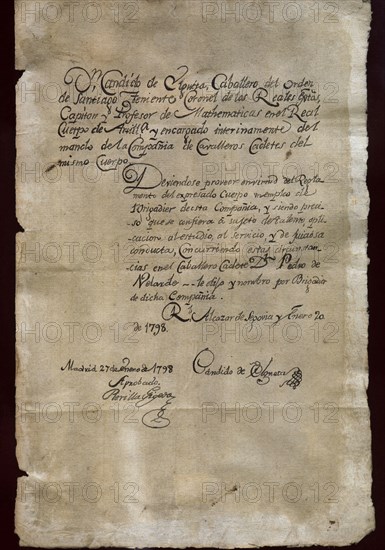 Dn. Candido de Elgueta, Cavallero del Orden
de Santiago Temente Coronel de los Reales Extos,
Capitan y Profesor de Mathematicas en el Real
Cuerpo de Artilla. y encargado interinamente del
mando de la Compañia de Cavalleros Cadetes del
mismo Cuerpo.
Deviendose proveer en virtud del Reglam
del expresado Cuerpo
Brigadier de esta Compañia, y siendo preci
so que se confiera á sujeto de talento, apli
cacion al estudio, al servicio y de juiciosa
conducta, Concurriendo estas circunstan
cias en el Cavallero Cadete Dn. Pedro de
Velarde le elijo y nombro por Brigadier
de dicha Compañia.
Rl. Alcazar de Segovia y Enero 20
de 1798.
Madrid 27 de Enero de 1798
Candido de Elgueta
Aprobado.